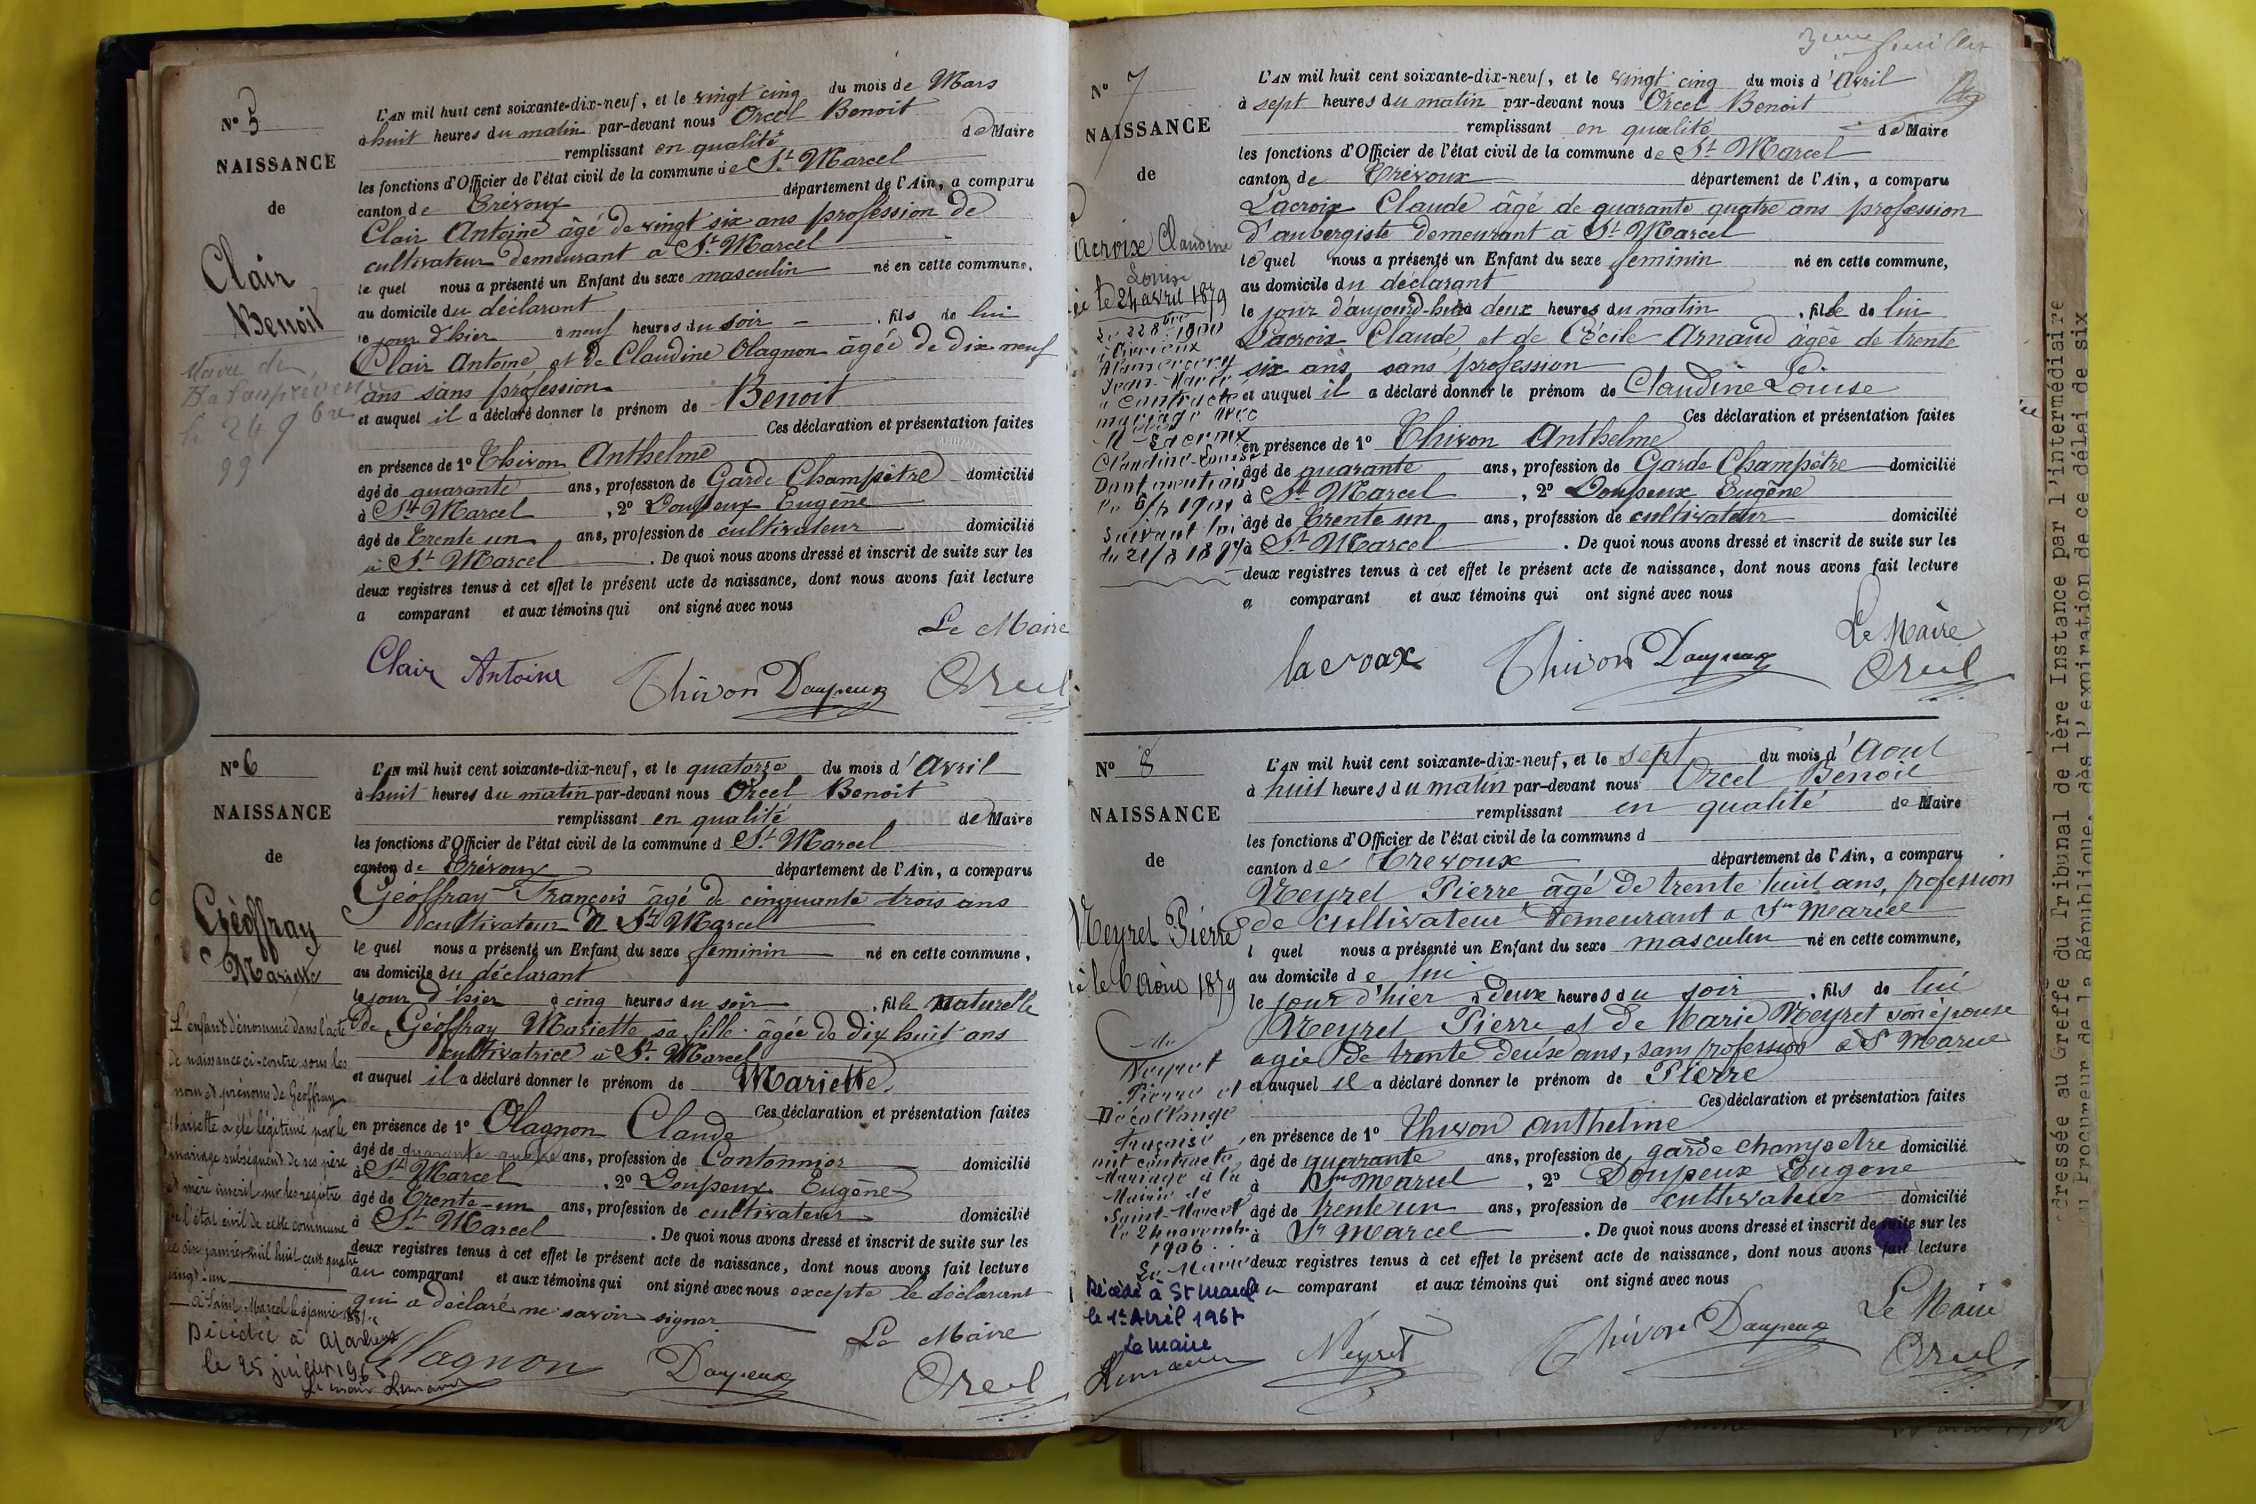 N° 5
NAISSANCE
de
Clair
Benoit
Maire de
le 24 9bre
99
L'AN mil huit cent soixante-dix-neuf, et le vingt cinq du mois de Mars
à huit heures du matin par-devant nous Orcel Benoit
remplissant en qualité de Maire
les fonctions d'Officier de l'état civil de la commune de St Marcel
canton de Trévoux département de l'Ain, a comparu
Clair Antoine âgé de vingt six ans profession de
cultivateur demeurant à St Marcel
le quel nous a présenté un Enfant du sexe masculin né en cette commune,
au domicile du déclarant
le jour d'hier à neuf heures du soir , fils de lui
Clair Antoine et de Claudine Olagnon âgée de dix neuf
ans sans profession
et auquel il a déclaré donner le prénom de Benoit
Ces déclaration et présentation faites
en présence de 1° Thivon Anthelme
âgé de quarante ans, profession de Garde Champêtre domicilié
à St Marcel , 2° Doupeux Eugène
âgé de Trente un ans, profession de cultivateur domicilié
à St Marcel . De quoi nous avons dressé et inscrit de suite sur les
deux registres tenus à cet effet le présent acte de naissance, dont nous avons fait lecture
a comparant et aux témoins qui ont signé avec nous
Le Maire
Clair Antoine Thivon Doupeux Orcel
N° 6
NAISSANCE
de
Géoffray
Mariette
L'enfant dénommé dans l'acte
de naissance ci-contre sous les
nom et prénoms de Géoffray
Mariette a été légitimé par le
mariage subséquent de ses père
et mère inscrit sur les registre
de l'état civil de cette commune
le six janvier mil huit cent quatre
vingt-un
à Saint Marcel le 6 janvier 1881
Décédée à
le 25 juillet 196
Le maire
L'AN mil huit cent soixante-dix-neuf, et le quatorze du mois d'Avril
à huit heures du matin par-devant nous Orcel Benoit
remplissant en qualité de Maire
les fonctions d'Officier de l'état civil de la commune d St Marcel
canton de Trévoux département de l'Ain, a comparu
Géoffray François âgé de cinquante trois ans
cultivateur à St Marcel
le quel nous a présenté un Enfant du sexe feminin né en cette commune,
au domicile du déclarant
le jour d'hier à cinq heures du soir , fille naturelle
de Géoffray Mariette sa fille âgée de dix huit ans
cultivatrice à St Marcel
et auquel il a déclaré donner le prénom de Mariette
Ces déclaration et présentation faites
en présence de 1° Olagnon Claude
âgé de quarante quatre ans, profession de Cantonnier domicilié
à St Marcel , 2° Doupeux Eugène
âgé de Trente-un ans, profession de cultivateur domicilié
à St Marcel . De quoi nous avons dressé et inscrit de suite sur les
deux registres tenus à cet effet le présent acte de naissance, dont nous avons fait lecture
au comparant et aux témoins qui ont signé avec nous excepté le déclarant
qui a déclaré ne savoir signer
Le Maire
Olagnon Doupeux Orcel
3eme feuillet
N° 7
NAISSANCE
de
Lacroix Claudine
Louise
née le 24 avril 1879
Le 22 8bre 1900
Jean-Marie
a contracté
mariage avec
Mlle Lacroix
Claudine-Louise
Dont mention
suivant loi
du 21/8 1897
L'AN mil huit cent soixante-dix-neuf, et le vingt cinq du mois d'Avril
à sept heures du matin par-devant nous Orcel Benoit
remplissant en qualité de Maire
les fonctions d'Officier de l'état civil de la commune de St Marcel
canton de Trévoux département de l'Ain, a comparu
Lacroix Claude âgé de quarante quatre ans profession
d'aubergiste demeurant à St Marcel
le quel nous a présenté un Enfant du sexe feminin né en cette commune,
au domicile du déclarant
le jour d'aujourd-hui à deux heures du matin , fille de lui
Lacroix Claude et de Cécile Arnaud âgée de trente
six ans sans profession
et auquel il a déclaré donner le prénom de Claudine Louise
Ces déclaration et présentation faites
en présence de 1° Thivon Anthelme
âgé de quarante ans, profession de Garde Champêtre domicilié
à St Marcel , 2° Doupeux Eugène
âgé de Trente un ans, profession de cultivateur domicilié
à St Marcel . De quoi nous avons dressé et inscrit de suite sur les
deux registres tenus à cet effet le présent acte de naissance, dont nous avons fait lecture
a comparant et aux témoins qui ont signé avec nous
Le Maire
Lacroix Thivon Doupeux Orcel
N° 8
NAISSANCE
de
Neyret Pierre
né le 6 Août 1879
Neyret
Pierre et
Françoise
ont contracté
Mariage à la
Mairie de
Saint-Marcel
le 24 novembre
1906
Le Maire
Décédé à St Marcel
le 1er Avril 1967
Le maire
L'AN mil huit cent soixante-dix-neuf, et le sept du mois d'Aout
à huit heures du matin par-devant nous Orcel Benoit
remplissant en qualité de Maire
les fonctions d'Officier de l'état civil de la commune d
canton de Trevoux département de l'Ain, a comparu
Neyret Pierre âgé de trente huit ans, profession
de cultivateur demeurant a St Marcel
l quel nous a présenté un Enfant du sexe masculin né en cette commune,
au domicile de lui
le jour d'hier à deux heures du soir , fils de lui
Neyret Pierre et de Marie Neyret son épouse
agée de trente deux ans, sans profession à St Marcel
et auquel il a déclaré donner le prénom de Pierre
Ces déclaration et présentation faites
en présence de 1° Thivon Anthelme
âgé de quarante ans, profession de garde champetre domicilié
à St Marcel , 2° Doupeux Eugene
âgé de trente un ans, profession de cultivateur domicilié
à St Marcel . De quoi nous avons dressé et inscrit de suite sur les
deux registres tenus à cet effet le présent acte de naissance, dont nous avons fait lecture
comparant et aux témoins qui ont signé avec nous
Le Maire
Neyret Thivon Doupeux Orcel
dressée au Greffe du Tribunal de 1ère Instance par l'intermédiaire
du Procureur de la République, dès l'expiration de ce délai de six